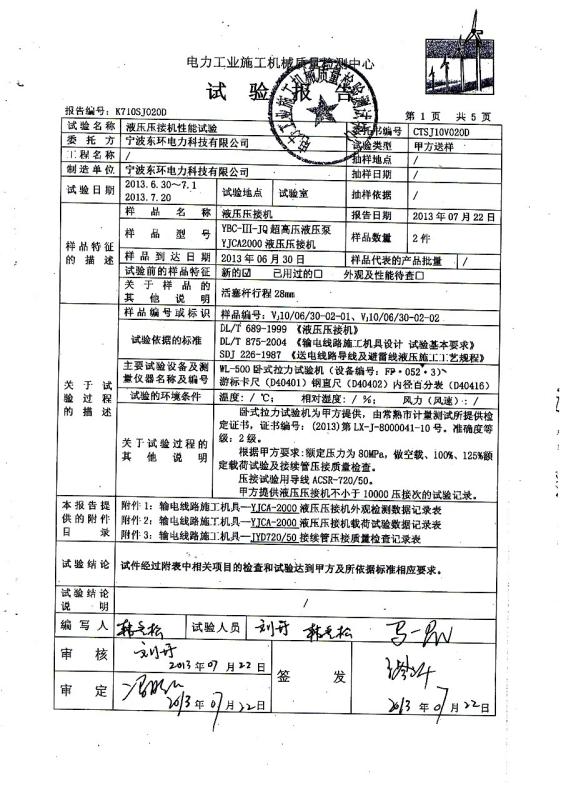 电力工业施工机械质量检测中心
试验报告
报告编号：K710SJ020D
第 1 页 共 5 页
试验名称 液压压接机性能试验 委托书编号 CTSJ10V020D
委托方 宁波东环电力科技有限公司 试验类型 甲方送样
工程名称 / 抽样地点 /
制造单位 宁波东环电力科技有限公司 抽样日期 /
试验日期 2013.6.30～7.1 2013.7.20 试验地点 试验室 抽样依据 /
样品特征的描述
样品名称 液压压接机 报告日期 2013年07月22日
样品型号 YBC-III-JQ超高压液压泵 样品数量 2件
YJCA2000液压压接机
样品到达日期 2013年06月30日 样品代表的产品批量 /
试验前的样品特征 新的☑ 已用过的□ 外观及性能待查□
关于样品的其他说明 活塞杆行程28mm
关于试验过程的描述
样品编号或标识 样品编号：VJ10/06/30-02-01、VJ10/06/30-02-02
试验依据的标准 DL/T 689-1999 《液压压接机》
DL/T 875-2004 《输电线路施工机具设计 试验基本要求》
SDJ 226-1987 《送电线路导线及避雷线液压施工工艺规程》
主要试验设备及测量仪器名称及编号 WL-500卧式拉力试验机（设备编号：FP·052·3）
游标卡尺（D40401）钢直尺（D40402）内径百分表（D40416）
试验的环境条件 温度：/ ℃； 相对湿度：/ %； 风力（风速）：/
关于试验过程的其他说明
卧式拉力试验机为甲方提供，由常熟市计量测试所提供检
定证书，证书编号：(2013)第LX-J-8000041-10号。准确度等
级：2级。
根据甲方要求:额定压力为80MPa，做空载、100%、125%额
定载荷试验及接续管压接质量检查。
压接试验用导线ACSR-720/50。
甲方提供液压压接机不小于10000压接次的试验记录。
本报告提供的附件目录
附件1：输电线路施工机具—YJCA-2000液压压接机外观检测数据记录表
附件2：输电线路施工机具—YJCA-2000液压压接机载荷试验数据记录表
附件3：输电线路施工机具—JYD720/50接续管压接质量检查记录表
试验结论 试件经过附表中相关项目的检查和试验达到甲方及所依据标准相应要求。
试验结论说明 /
编写人 试验人员 刘开
审核 刘开
2013年07月22日
签发
审定
2013年07月22日
2013年07月22日